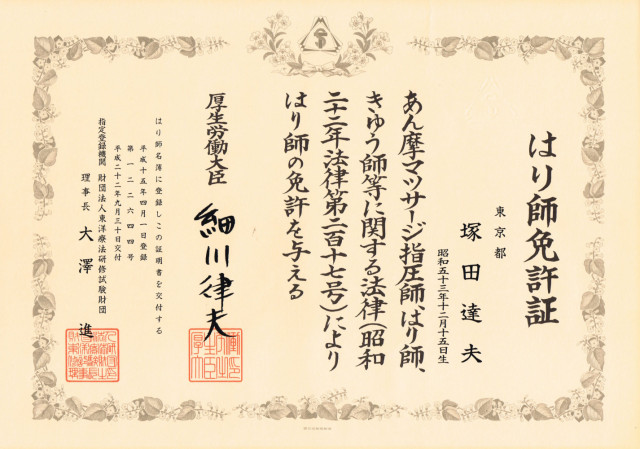 はり師免許証
東京都
塚田達夫
昭和五十三年十二月十五日生
あん摩マツサージ指圧師、はり師、
きゆう師等に関する法律(昭和
二十二年法律第二百十七号)により
はり師の免許を与える
厚生労働大臣
細川律夫
はり師名簿に登録しこの証明書を交付する
平成十五年四月一日登録
第一二二六四四号
平成二十二年九月三十日交付
指定登録機関 財団法人東洋療法研修試験財団
理事長 大澤進